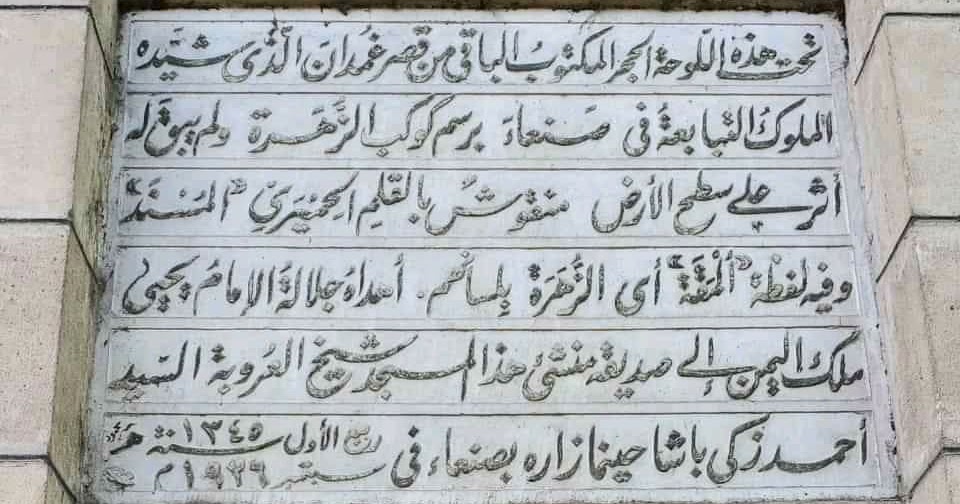 تحت هذه اللّوحة الحجر المكتوبُ الباقي من قصر غمدان الّذى شيّده
الملوكُ التبابعةُ فى صَنعاءَ برسم كوكب الزُّهَرة ولم يبق له
أثر على سطح الأرض منقوشٌ بالقلم الحِمْيَرِيّ «المُسْنَد»
وفيه لفظة «ألْمَقَة» أى الزُّهَرَة بلسانهم. أهداهُ جلالةُ الإمامُ يحيى
ملك اليمن إلى صديقه منشئ هذا المسجد شيخ العُروبة السّيد
أحمد زكى باشا حينما زاره بصنعاء فى ربيع الأول سنة ١٣٤٥ هـ
سبتمبر ١٩٢٦ م